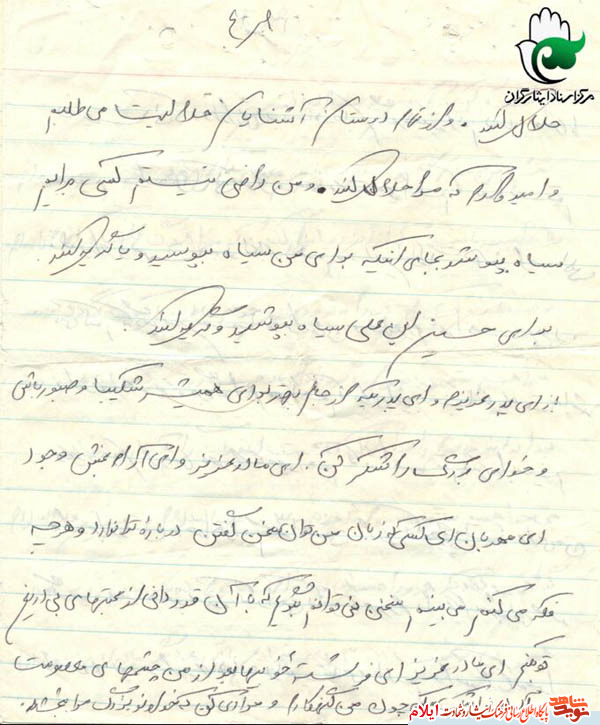 ص ع
مرکز اسناد ایثارگران
حلال کنند. و از تمام دوستان آشنایان حلالیت می طلبم
و امیدوارم که مرا حلال کنند. و من راضی نیستم کسی برایم
سیاه بپوشد بجای اینکه برای من سیاه بپوشید و یا گریه کنند.
برای حسین ابن علی سیاه بپوشید و گریه کنند.
ای پدر عزیزم و ای پدریکه از جانم بهتر برای همیشه شکیبا و صبور باش
و خدای را شکر کن. ای مادر عزیز و ای آرام بخش وجود
ای مهربان ای کسی که زبان من توان سخن گفتن درباره ترا ندارد و هر چه
فکر می کنم می بینم سخنی نمی توانم بگویم که با آن قدردانی از محبتهای بی دریغ
تو کنم ای مادر عزیز ای فرشته خوبیها از من چشمهای معصومت
چون من گنهکارم و مرا
نوید شاهد
پایگاه اطلاع رسانی فرهنگ ایثار و شهادت
ایلام